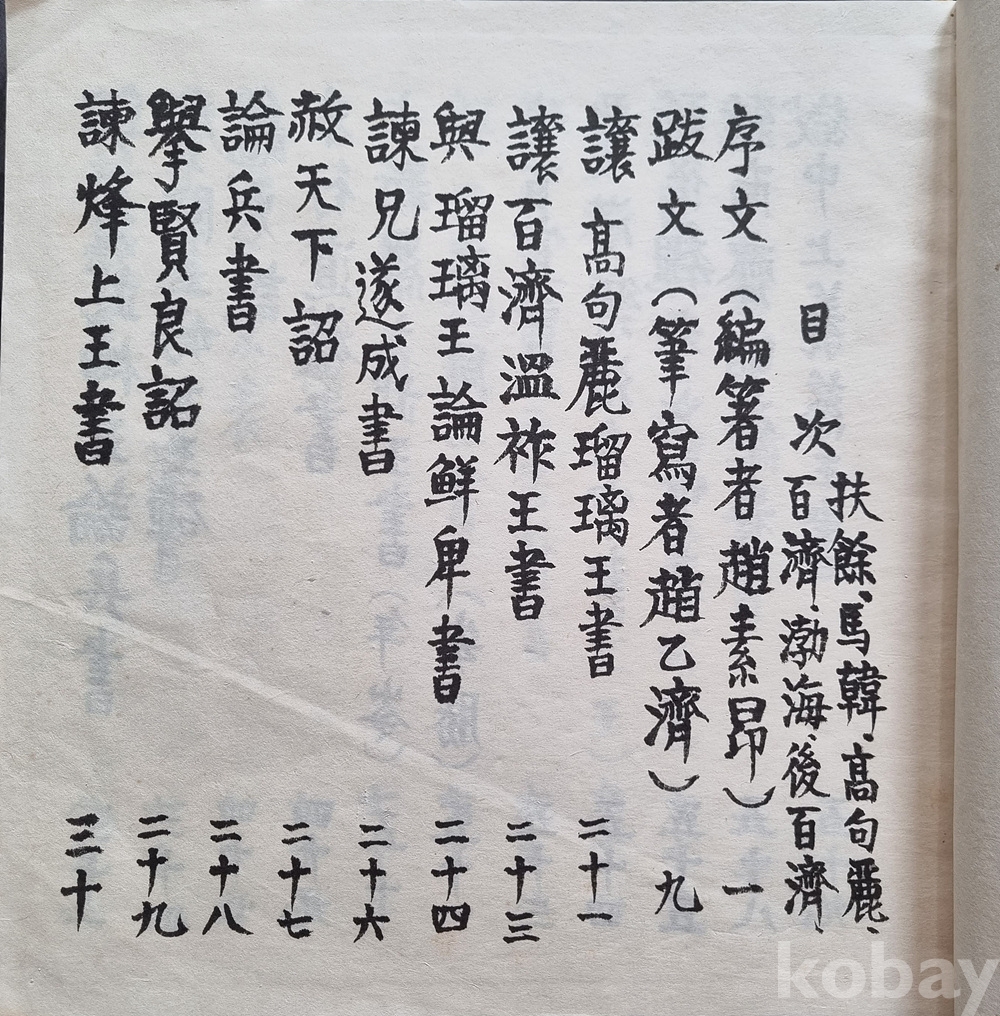 目次 扶餘、馬韓、高句麗、
百濟、渤海、後百濟、
序文（編著者 趙素昻） 一
跋文（筆寫者 趙乙濟） 九
讓高句麗瑠璃王書 二十一
讓百濟溫祚王書 二十三
與瑠璃王論鮮卑書 二十四
諫兄遂成書 二十六
赦天下詔 二十七
論兵書 二十八
擧賢良詔 二十九
諫烽上王書 三十
kobay